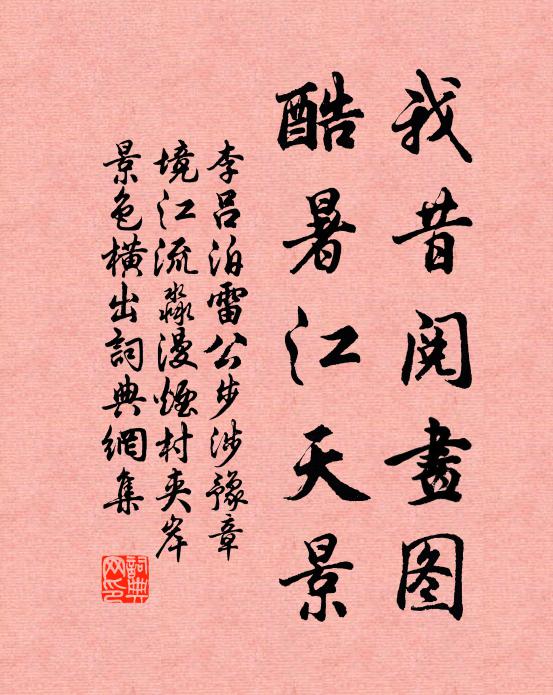 我昔阅畫图
酷暑江天景
李吕泊雷公步涉豫章
境江流淼漫煙村夹岸
景色橫出詞典網集
詞典网印